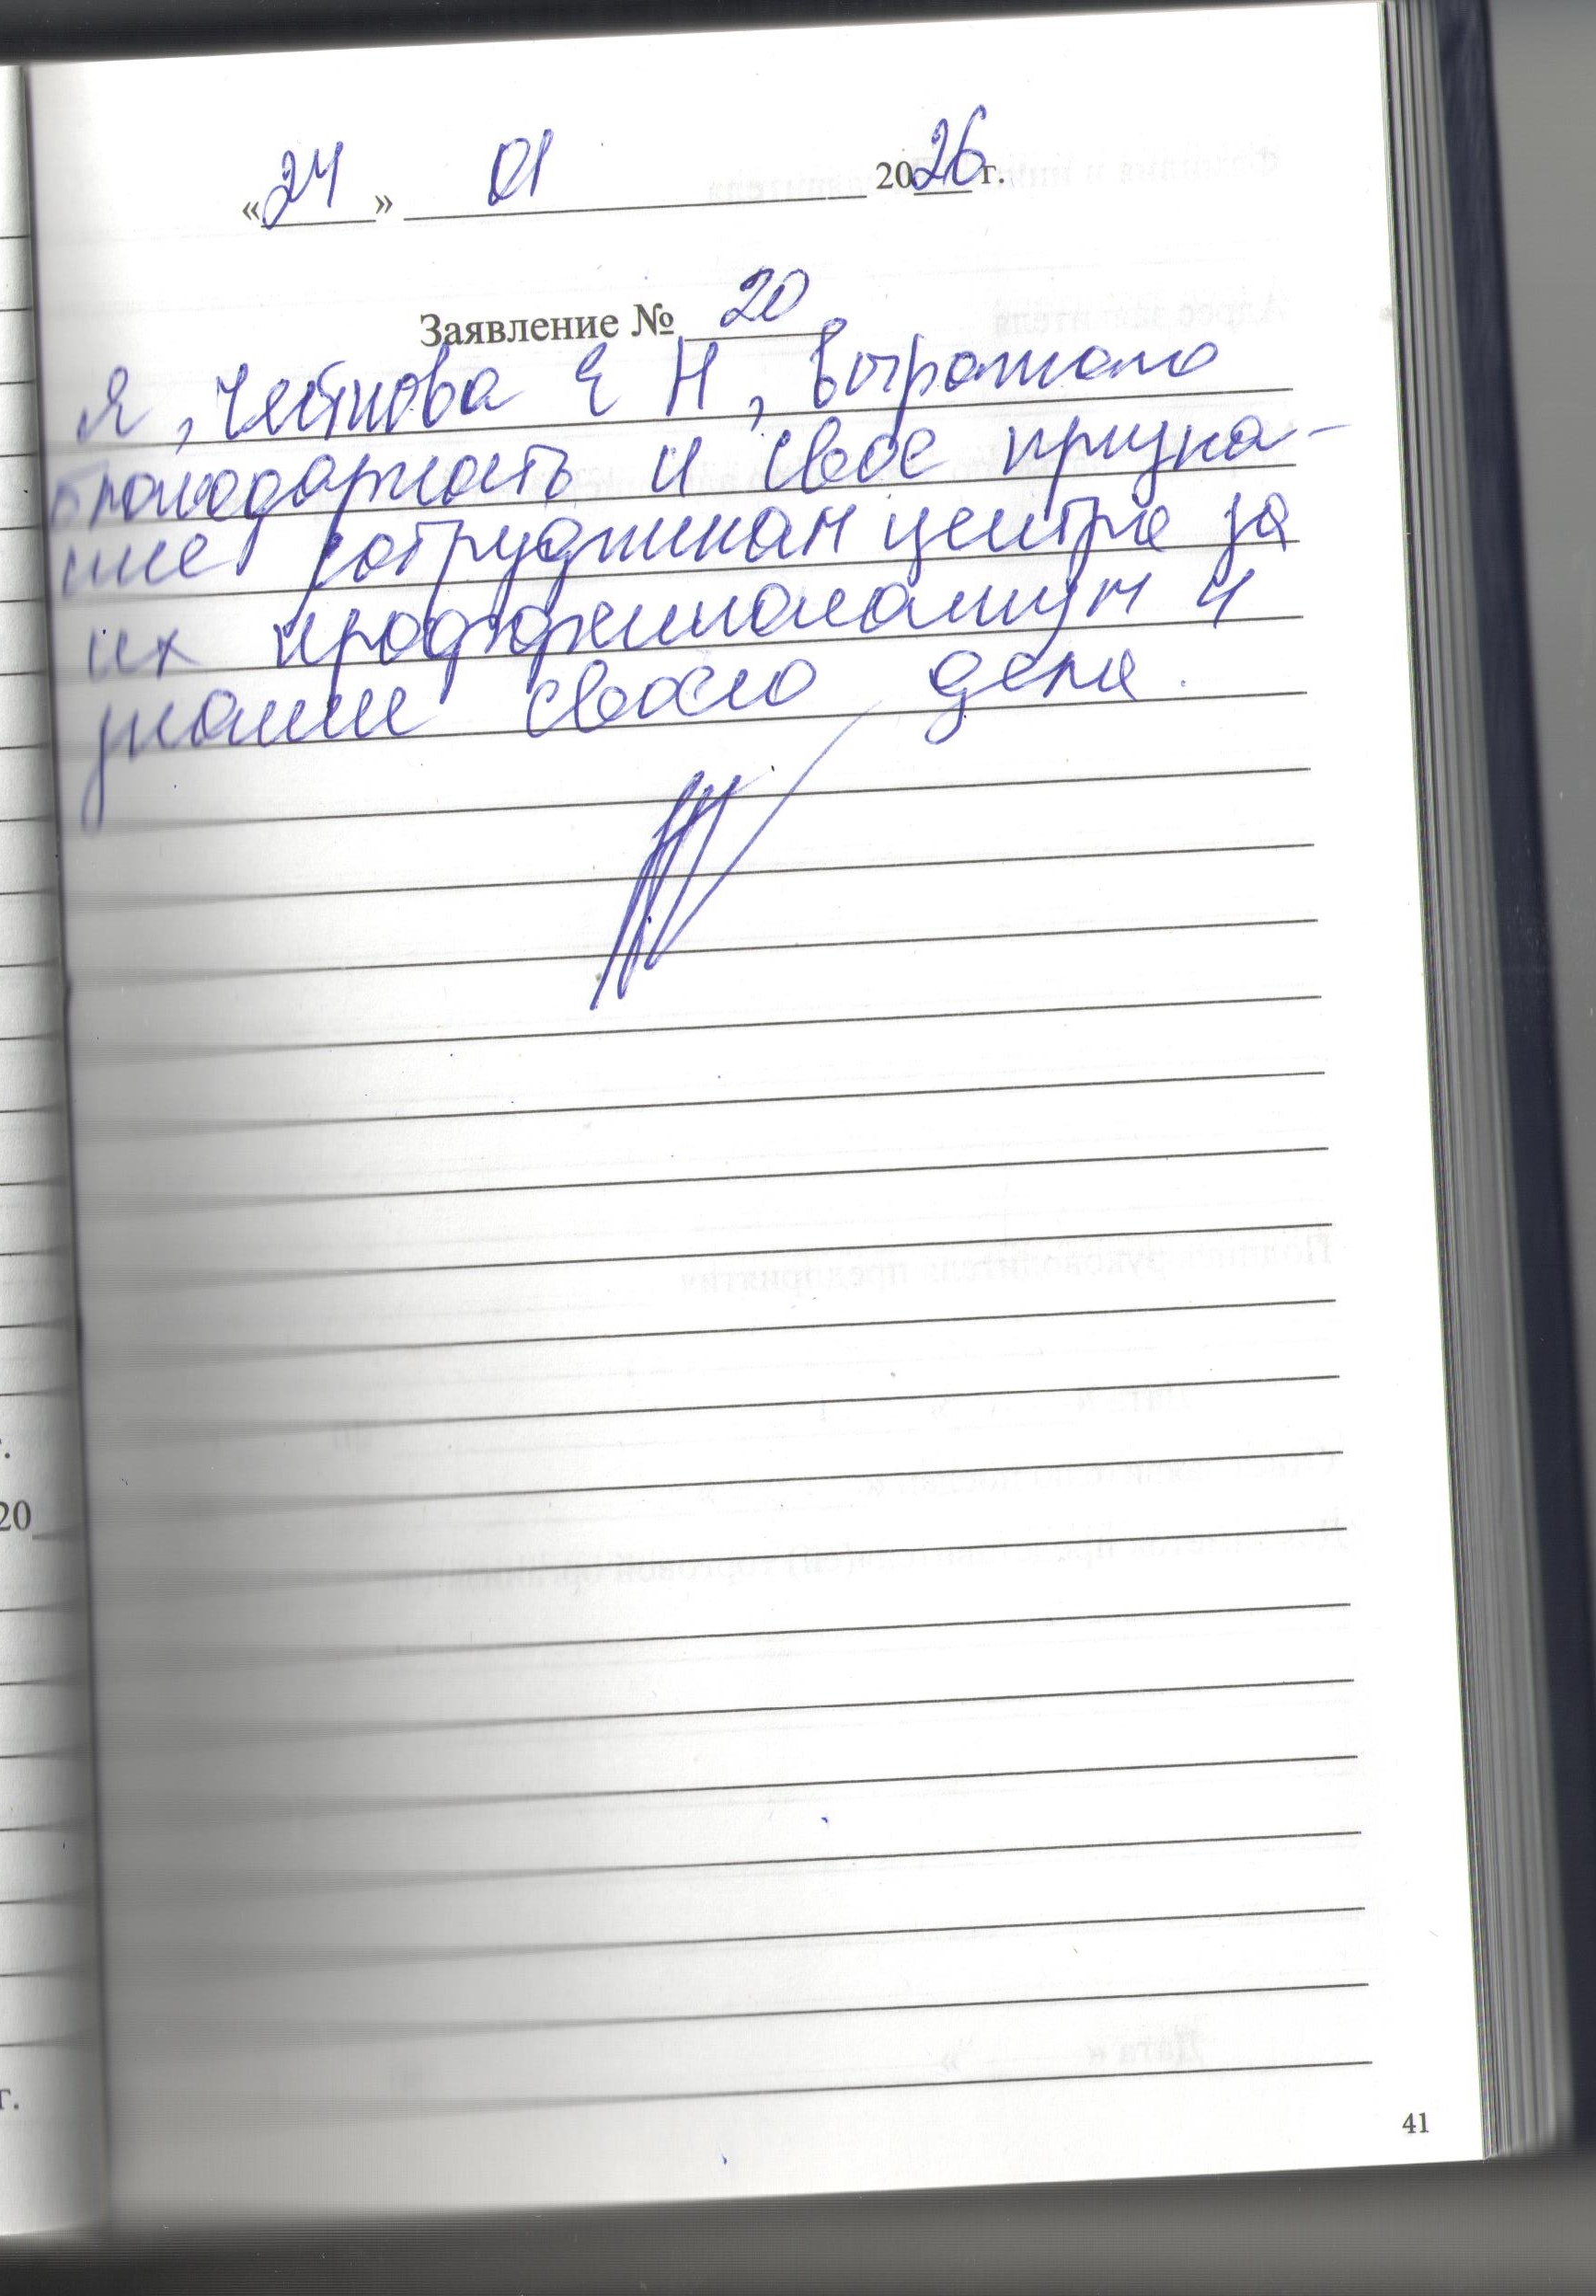 «24» 01 2026 г.
Заявление № 20
Я, Четнова Е Н, выражаю
благодарность и свое призна-
ние сотрудникам центра за
их профессионализм и
знание своего дела.
20
г.
41